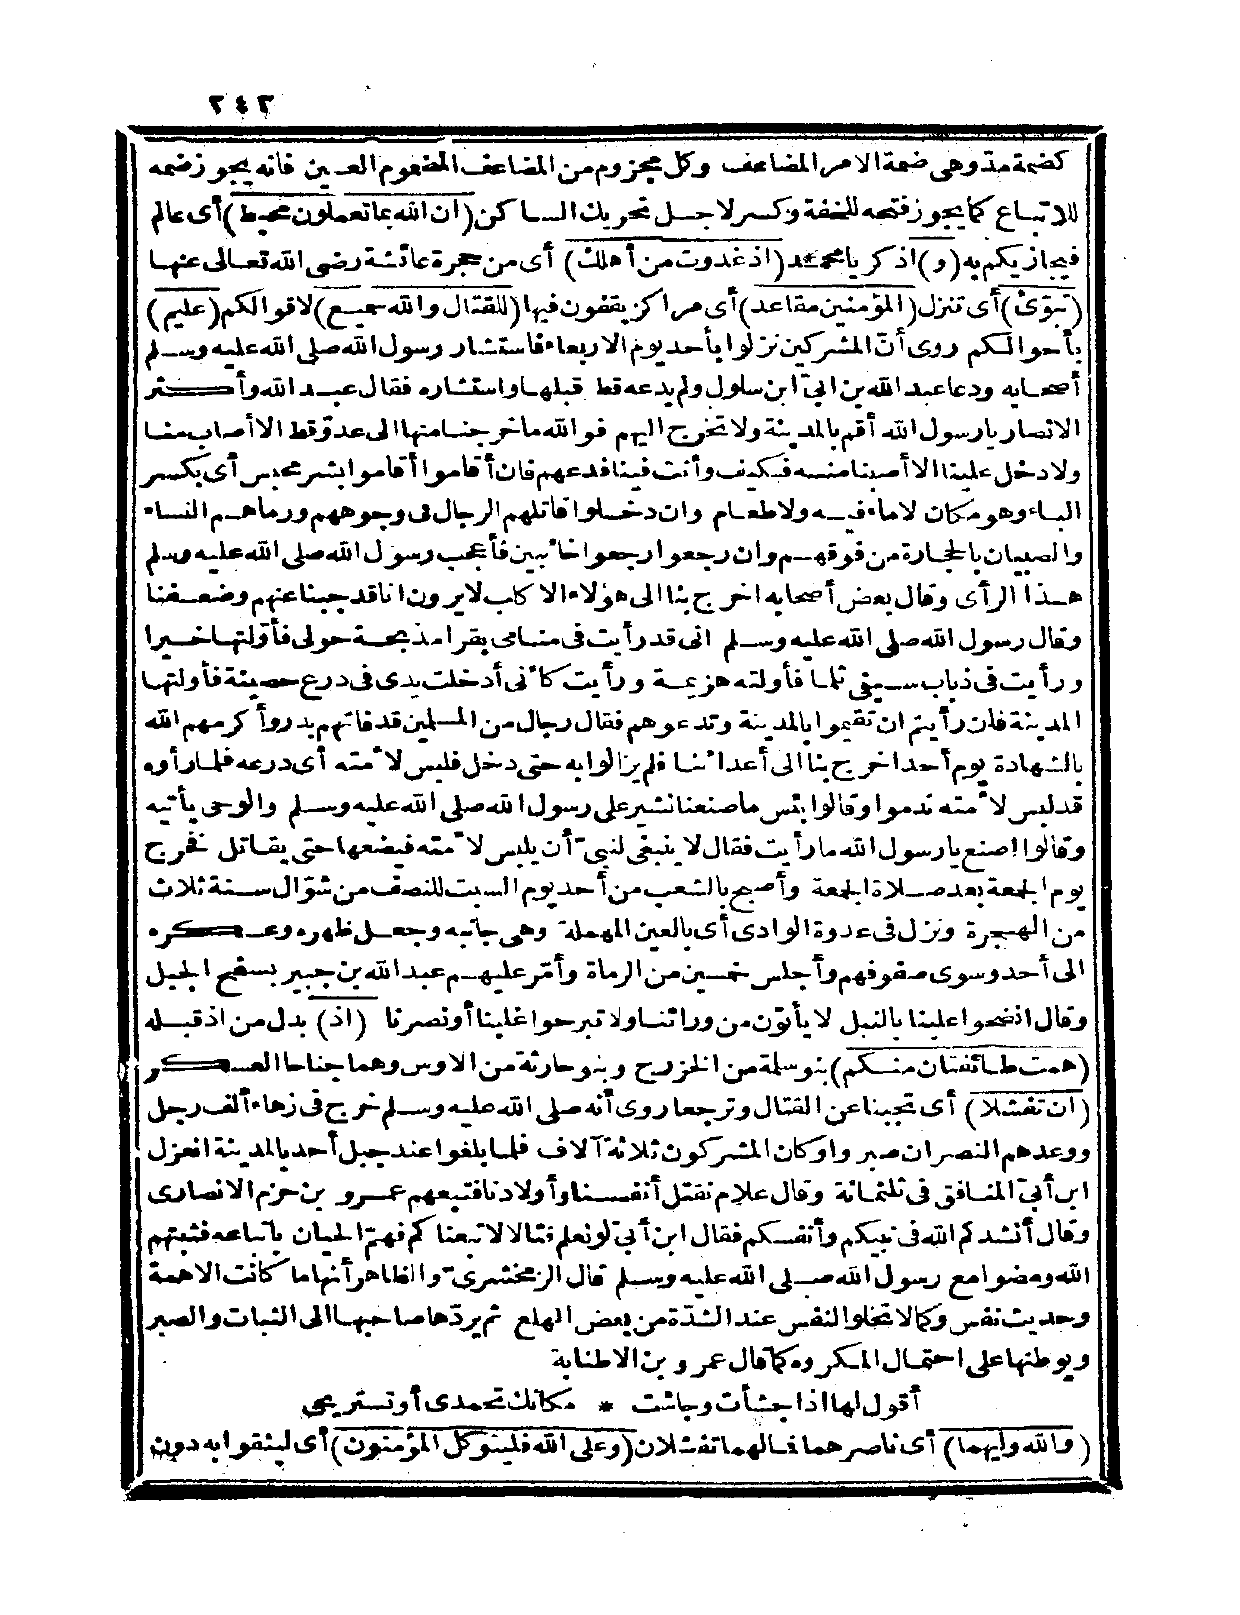 ٢٤٣
كضمة مذ وهى ضمة الامر المضاعف وكل مجزوم من المضاعف المضموم العين فانه يجوز ضمه
للاتباع كما يجوز فتحه للخفة وكسر لاجل تحريك الساكن (ان الله بما تعملون محيط) أى عالم
فيجازيكم به (و) اذكر يا محمد (اذ غدوت من أهلك) أى من حجرة عائشة رضى الله تعالى عنها
(تبوّئ) أى تنزل (المؤمنين مقاعد) أى مراكز يقفون فيها (للقتال والله سميع) لاقوالكم (عليم)
بأحوالكم روى أنّ المشركين نزلوا بأحد يوم الاربعاء فاستشار رسول الله صلى الله عليه وسلم
أصحابه ودعا عبد الله بن ابىّ ابن سلول ولم يدعه قط قبلها واستشاره فقال عبد الله وأكثر
الانصار يا رسول الله أقم بالمدينة ولا تخرج اليهم فو الله ما خرجنا منها الى عدوّ قط الا أصاب منا
ولا دخل علينا الا أصبنا منه فكيف وأنت فينا فدعهم فان أقاموا أقاموا بشر محبس أى بكسر
الباء وهو مكان لا ماء فيه ولا طعام وان دخلوا قاتلهم الرجال فى وجوههم ورماهم النساء
والصبيان بالحجارة من فوقهم وان رجعوا رجعوا خائبين فأعجب رسول الله صلى الله عليه وسلم
هذا الرأى وقال بعض أصحابه اخرج بنا الى هؤلاء الاكلب لا يرون اناقد جبنا عنهم وضعفنا
وقال رسول الله صلى الله عليه وسلم انى قد رأيت فى منامى بقرا مذبحة حولى فأوّلتها خيرا
ورأيت فى ذباب سيفى ثلما فأولته هزيمة ورأيت كأنى أدخلت يدى فى درع حصينة فأولتها
المدينة فان رأيتم ان تقيموا بالمدينة وتدعوهم فقال رجال من المسلمين قد فاتهم بدر وأكرمهم الله
بالشهادة يوم أحد اخرج بنا الى أعدائنا فلم يزالوا به حتى دخل فلبس لأمته أى درعه فلما رأوه
قد لبس لأمته ندموا وقالوا بئس ما صنعنا نشير على رسول الله صلى الله عليه وسلم والوحى يأتيه
وقالوا اصنع يا رسول الله ما رأيت فقال لا ينبغى لنبىّ أن يلبس لأمته فيضعها حتى يقاتل فخرج
يوم الجمعة بعد صلاة الجمعة وأصبح بالشعب من أحد يوم السبت للنصف من شوّال سنة ثلاث
من الهجرة ونزل فى عدوة الوادى أى بالعين المهملة وهى جانبه وجعل ظهره وعسكره
الى أحد وسوى صفوفهم وأجلس خمسين من الرماة وأمّر عليهم عبد الله بن جبير بسفح الجبل
وقال انضحوا علينا بالنبل لا يأتون من ورائنا ولا تبرحوا غلبنا أو نصرنا (اذ) بدل من اذ قبله
(همت طائفتان منكم) بنو سلمة من الخزرج وبنو حارثة من الاوس وهما جناحا العسكر
(ان تفشلا) أى تجبنا عن القتال وترجعا روى أنه صلى الله عليه وسلم خرج فى زهاء ألف رجل
ووعدهم النصر ان صبروا وكان المشركون ثلاثة آلاف فلما بلغوا عند جبل أحد بالمدينة انعزل
ابن أبىّ المنافق فى ثلثمائة وقال علام نقتل أنفسنا وأولادنا فتبعهم عمرو بن حزم الانصارى
وقال أنشدكم الله فى نبيكم وأنفسكم فقال ابن أبىّ لو نعلم قتالا لاتبعنا كم فهمّ الحيان باتباعه فثبتهم
الله ومضوا مع رسول الله صلى الله عليه وسلم قال الزمخشرىّ والظاهر أنها ما كانت الا همة
وحديث نفس وكما لا تخلو النفس عند الشدّة من بعض الهلع ثم يردّها صاحبها الى الثبات والصبر
ويوطنها على احتمال المكروه كما قال عمرو بن الاطنابة
أقول لها اذا جشأت وجاشت * مكانك تحمدى أو تستريحى
(والله وليهما) أى ناصرهما فما لهما تفشلان (وعلى الله فليتوكل المؤمنون) أى ليثقوا به دون